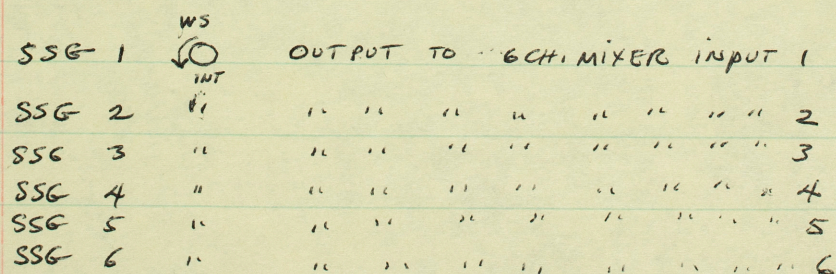 WS
SSG 1 OUTPUT TO 6 CH. MIXER INPUT 1
INT
SSG 2 " " " " " " " " " 2
SSG 3 " " " " " " " " " 3
SSG 4 " " " " " " " " " 4
SSG 5 " " " " " " " " " 5
SSG 6 " " " " " " " " " 6